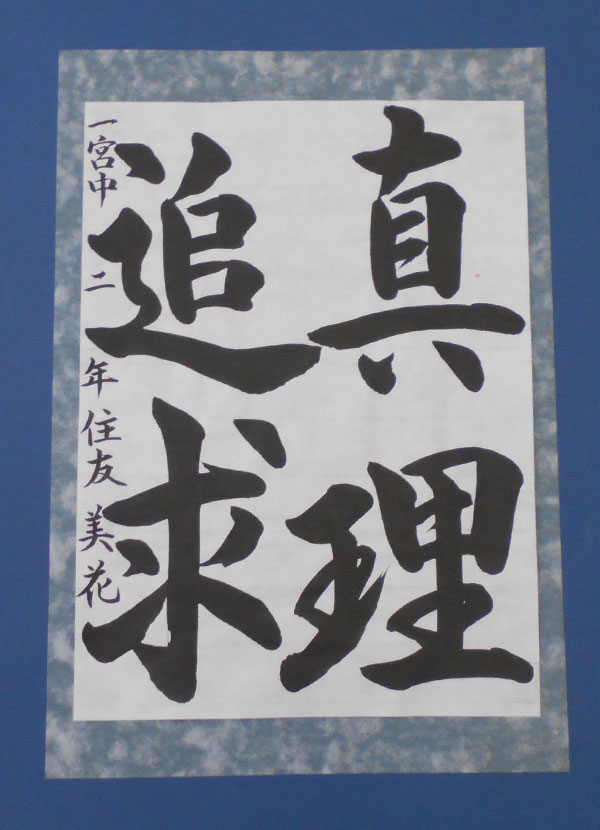 真理
追求
一宮中 二年 住友 美花